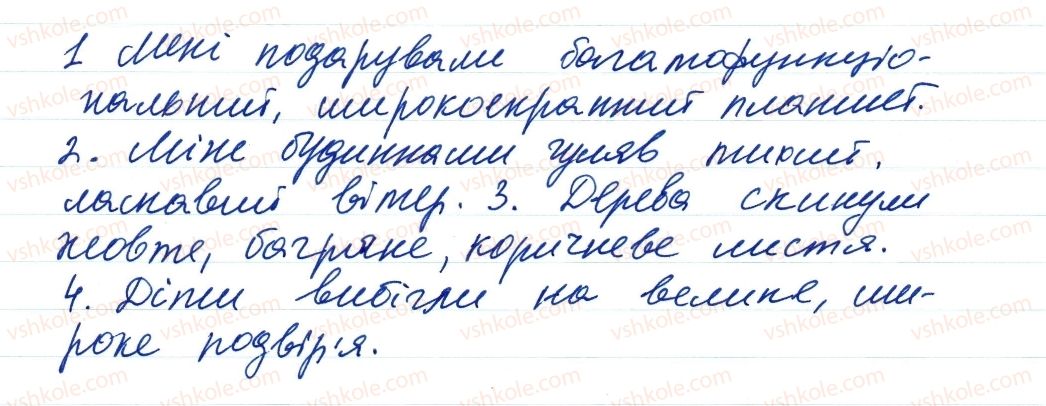 1 Мені подарували багатофункціо-
нальний, широкоекранний планшет.
2. Між будинками гуляв тихий,
ласкавий вітер. 3. Дерева скинули
жовте, багряне, коричневе листя.
4. Діти вибігли на велике, ши-
роке подвір'я.